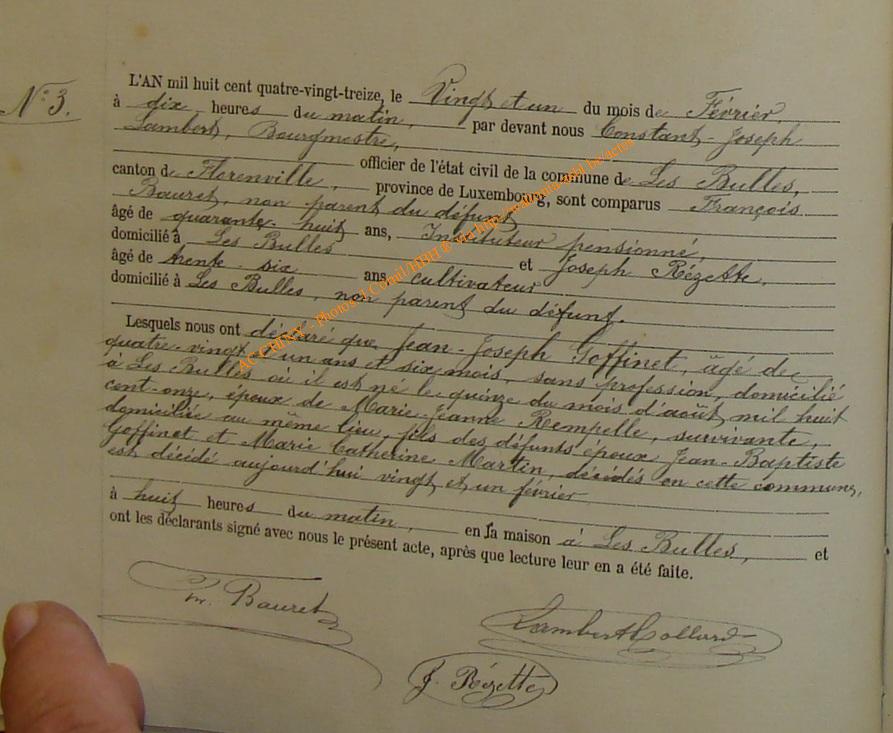 N° 3.
L'AN mil huit cent quatre-vingt-treize, le Vingt et un du mois de Février,
à dix heures du matin, par devant nous Constant-Joseph
Lambert, Bourgmestre,
officier de l'état civil de la commune de Les Bulles,
canton de Florenville, province de Luxembourg, sont comparus François
Bauret, non parent du défunt
âgé de quarante-huit ans, Instituteur pensionné,
domicilié à Les Bulles et Joseph Rézette,
âgé de trente-six ans cultivateur
domicilié à Les Bulles, non parent du défunt.
Lesquels nous ont déclaré que Jean-Joseph Goffinet, âgé de
quatre-vingt-un ans et six mois, sans profession, domicilié
à Les Bulles où il est né le quinze du mois d'août mil huit
cent-onze, époux de Marie-Jeanne Rempelle, survivante,
domiciliée au même lieu, fils des défunts époux Jean-Baptiste
Goffinet et Marie Catherine Martin, décédés en cette commune,
est décédé aujourd'hui vingt et un février
à huit heures du matin, en sa maison à Les Bulles, et
ont les déclarants signé avec nous le présent acte, après que lecture leur en a été faite.
Bauret
Lambert Collard
J. Rézette